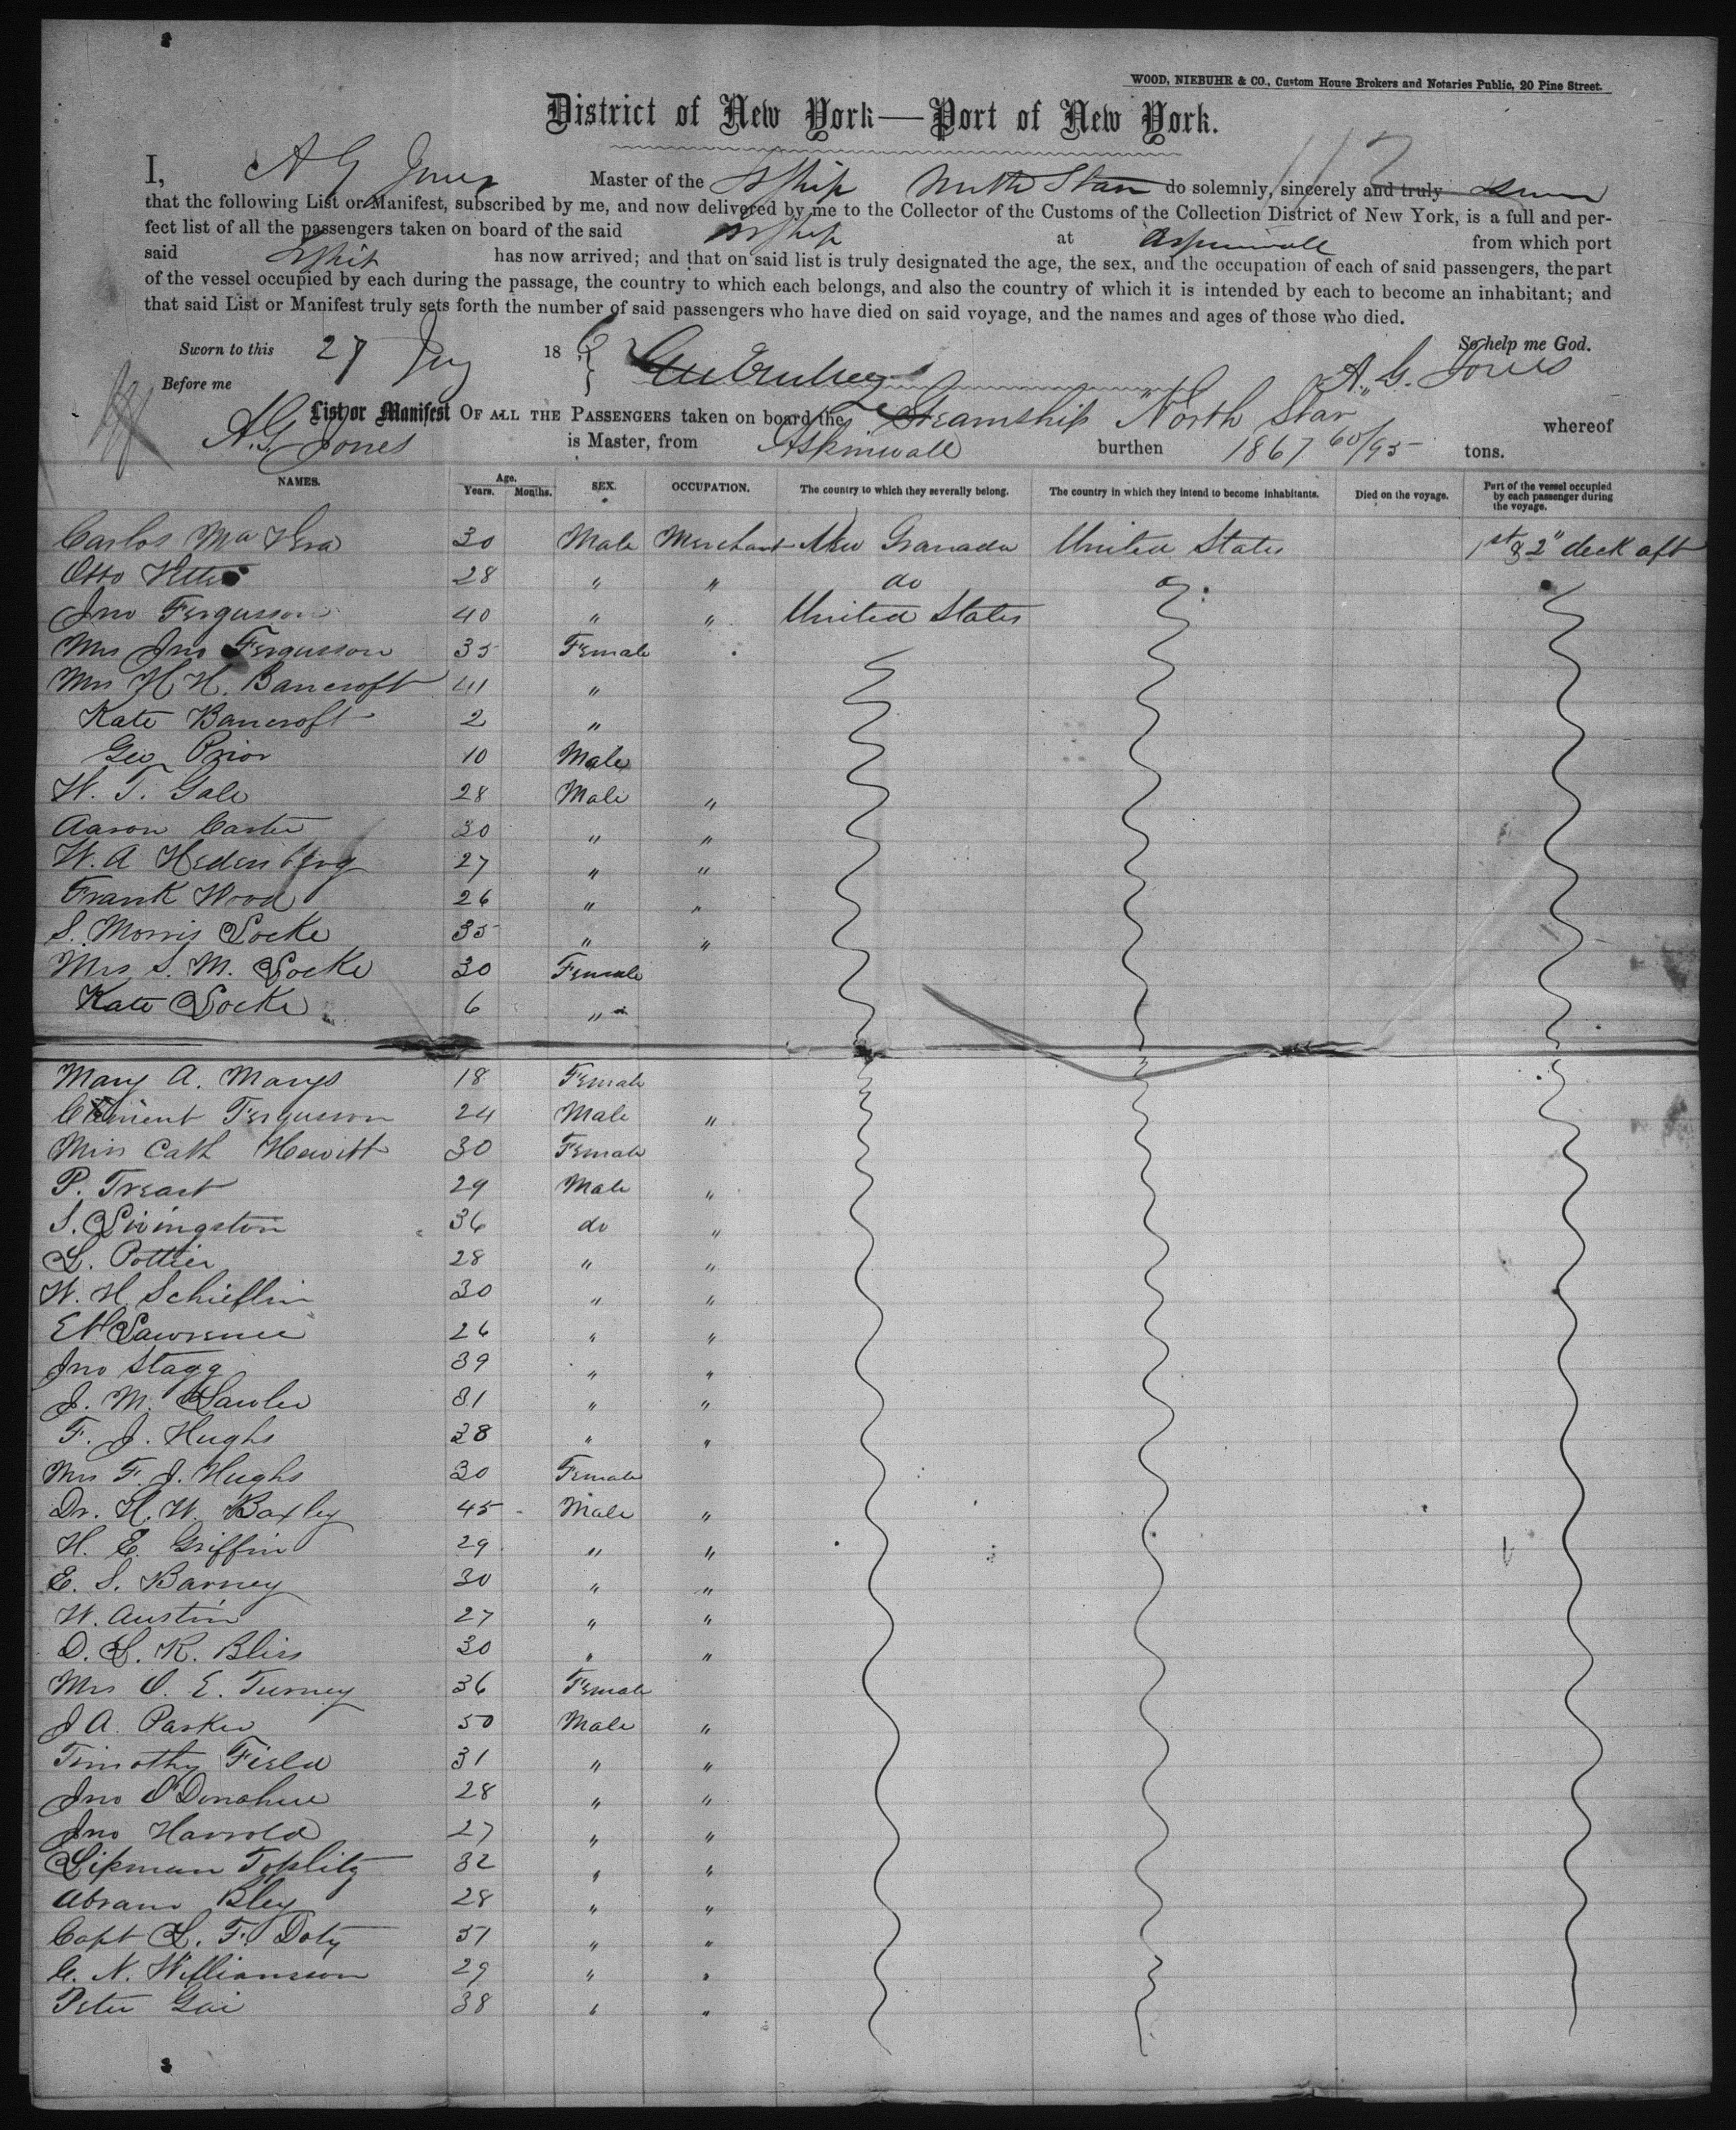 WOOD, NIEBUHR & CO., Custom House Brokers and Notaries Public, 20 Pine Street.
District of New York—Port of New York.
112
I, A G Jones Master of the SShip North Star do solemnly, sincerely and truly swear
that the following List or Manifest, subscribed by me, and now delivered by me to the Collector of the Customs of the Collection District of New York, is a full and per-
fect list of all the passengers taken on board of the said SShip at Aspinwall from which port
said SShip has now arrived; and that on said list is truly designated the age, the sex, and the occupation of each of said passengers, the part
of the vessel occupied by each during the passage, the country to which each belongs, and also the country of which it is intended by each to become an inhabitant; and
that said List or Manifest truly sets forth the number of said passengers who have died on said voyage, and the names and ages of those who died.
Sworn to this 27 18 6 So help me God.
Before me A. G. Jones
List or Manifest OF ALL THE PASSENGERS taken on board the Steamship North Star whereof
A. G. Jones is Master, from Aspinwall burthen 1867 60/95 tons.
NAMES. Age. Years. Months. SEX. OCCUPATION. The country to which they severally belong. The country in which they intend to become inhabitants. Died on the voyage. Part of the vessel occupied by each passenger during the voyage.
Carlos Ma 30 Male Merchant New Granada United States 1st & 2" deck aft
Otto 28 " " do
Jno Fergusson 40 " " United States
Mrs Jno Fergusson 35 Female
Mrs H. H. Bancroft 41 "
Kate Bancroft 2 "
Geo Prior 10 Male
W. T. Gale 28 Male "
Aaron Carter 30 " "
W. A Hedenberg 27 " "
Frank Wood 26 " "
S. Morris Locke 35 " "
Mrs S. M. Locke 30 Female
Kate Locke 6 "
Mary A. Marys 18 Female
Clement Fergusson 24 Male "
Miss Cath Hewitt 30 Female
P. Treast 29 Male "
S. Livingston 36 do "
L. Pottier 28 " "
W. H. Schieflin 30 " "
E H Lawrence 26 " "
Jno Stagg 39 " "
J. M. Lawler 31 " "
F. J. Hughs 38 " "
Mrs F. J. Hughs 30 Female
Dr. H. W. Baxley 45 Male "
H. E. Griffin 29 " "
E. S. Barney 30 " "
W. Austin 27 " "
D. L. K. Bliss 30 " "
Mrs O. E. Turney 36 Female
J A. Parker 50 Male "
Timothy Field 31 " "
Jno O'Donahue 28 " "
Jno Harrold 27 " "
Lipman Toplitz 32 " "
Abram Bley 28 " "
Capt L. F. Doty 51 " "
C. N. Williamson 29 " "
Peter Gai 38 " "